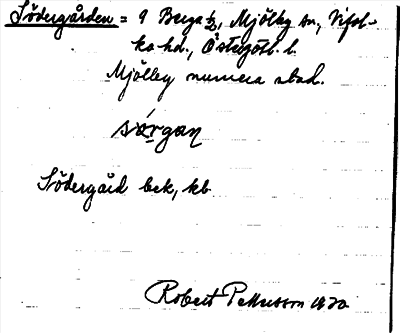 Södergården = 9 Berga ½, Mjölby sn, Vifol-
ka hd., Östergötl. l.
Mjölby numera stad.
sǿrgan
Södergård bek, kb
Robert Pettersson 1920